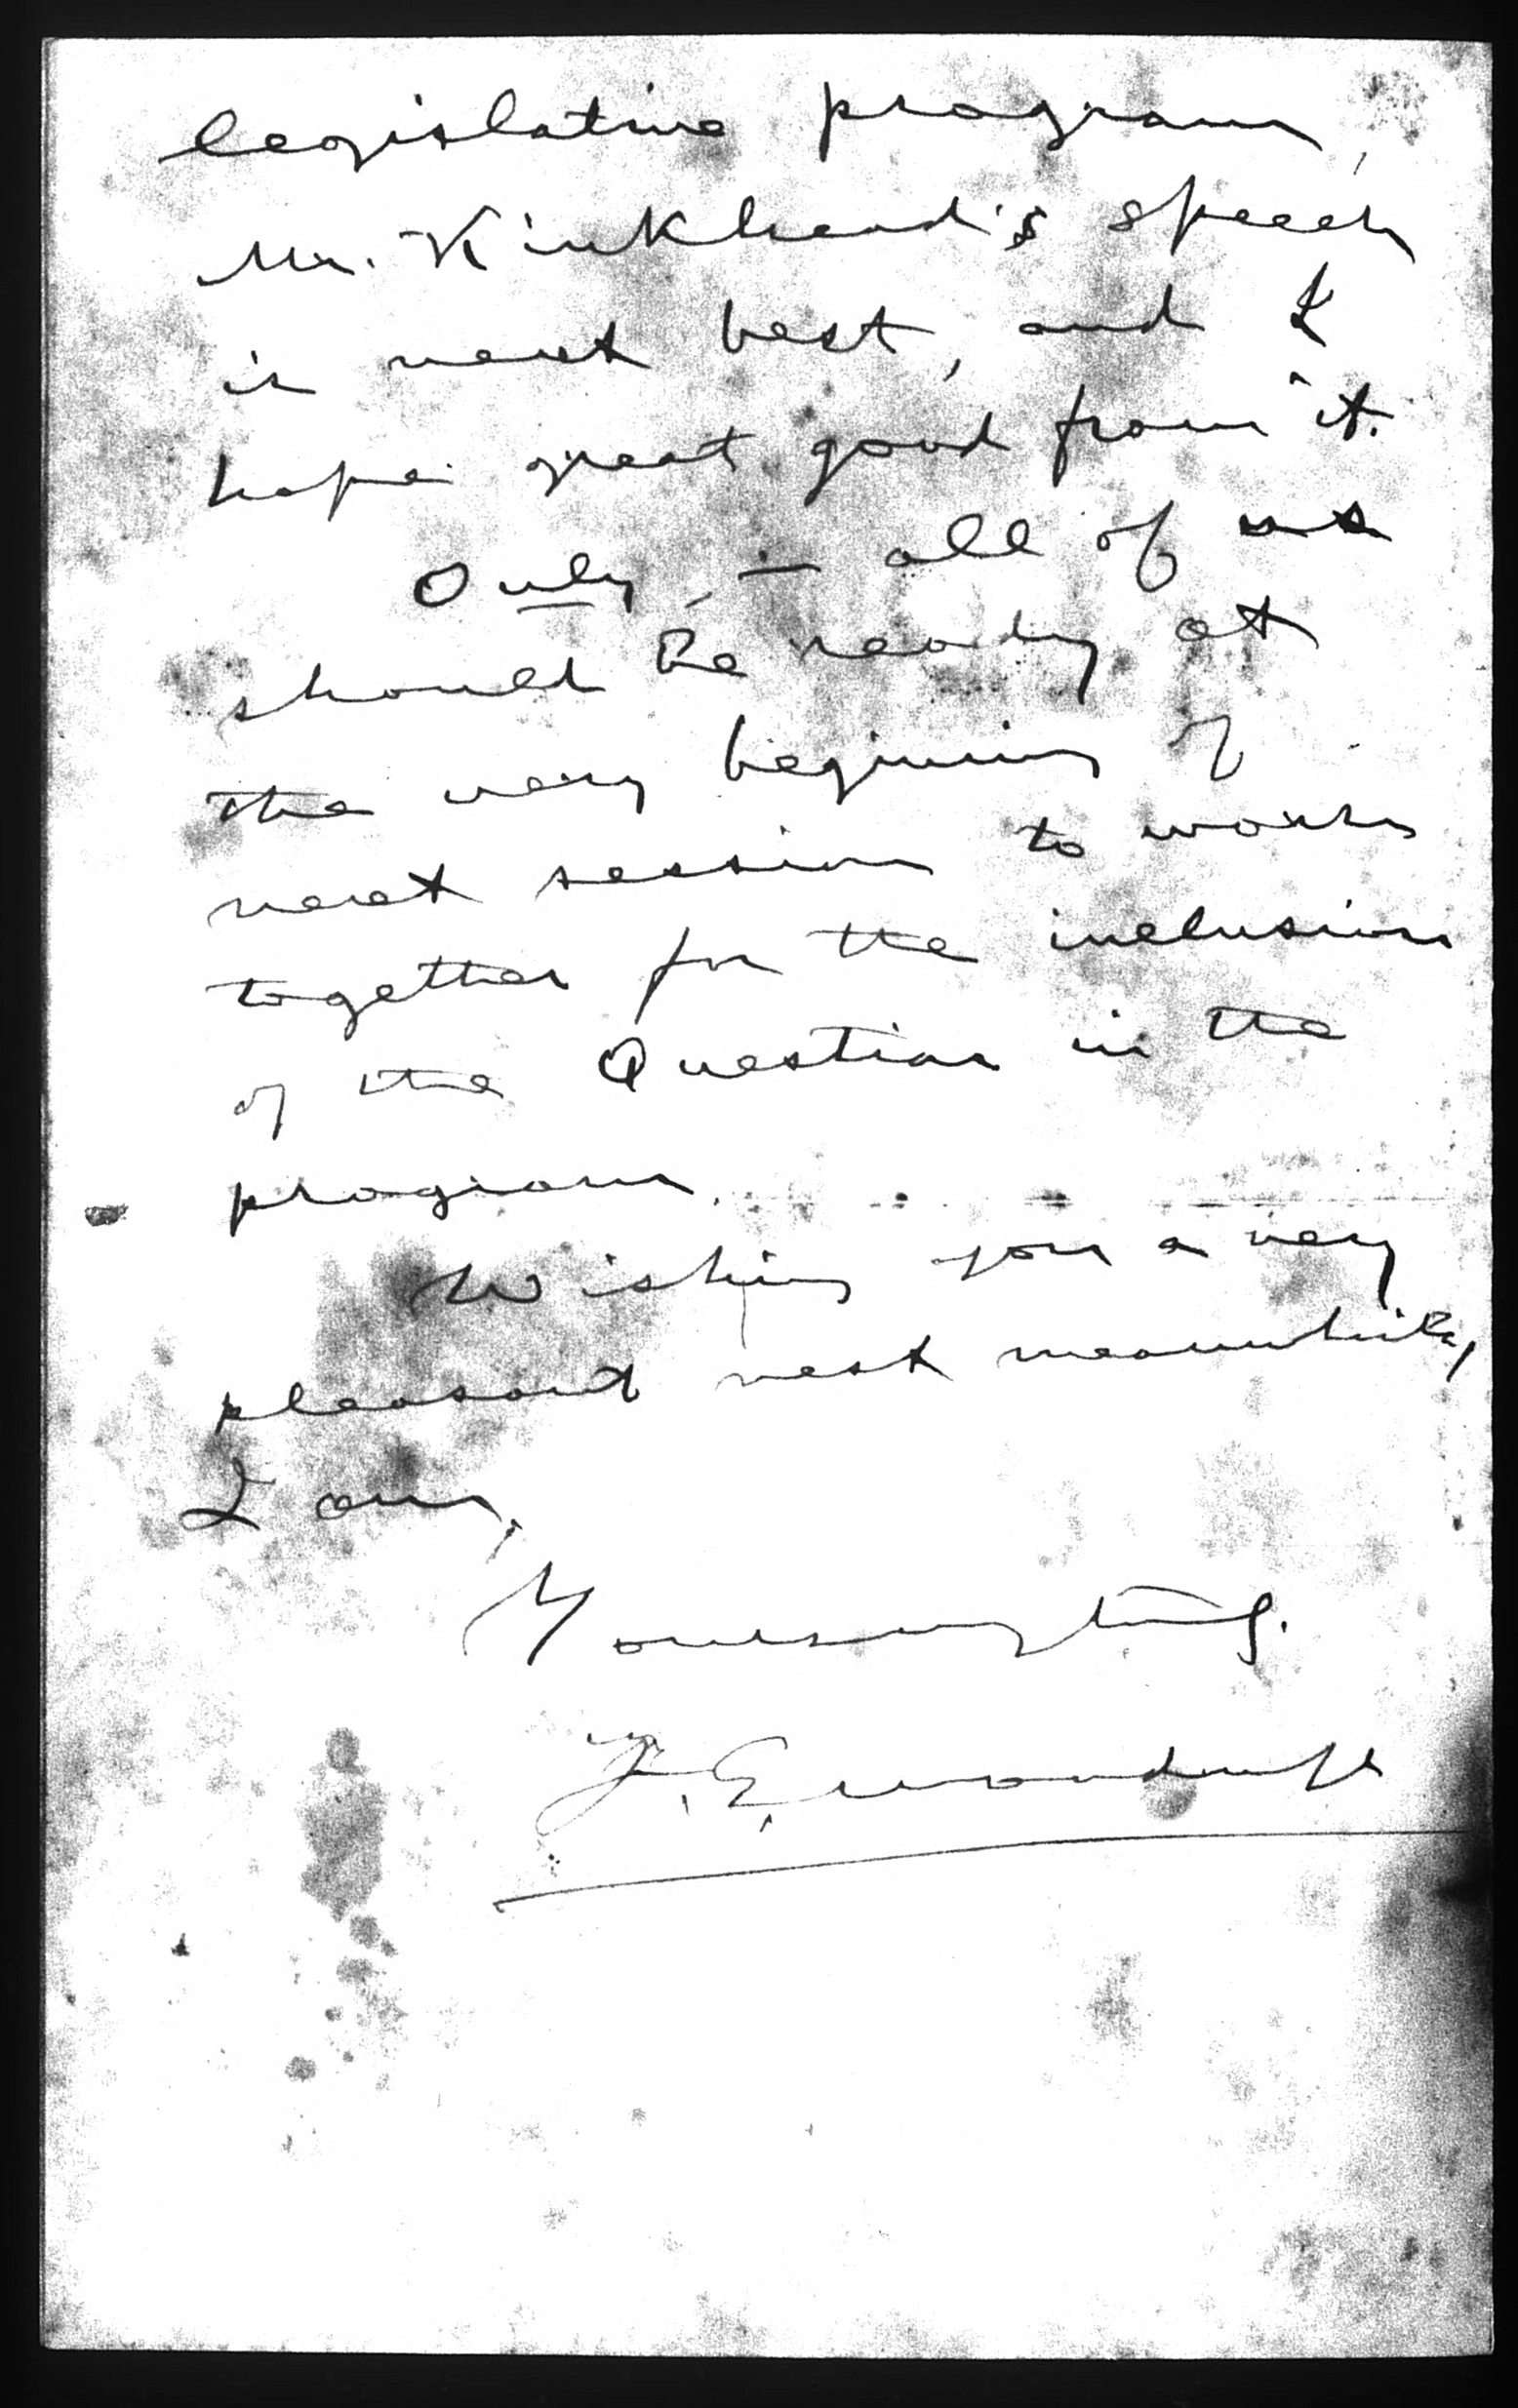 legislative program,
Mr. Kinkhead's speech
is next best, and I
hope great good from it.
Only, — all of us
should be ready at
the very beginning of
next session to work
together for the inclusion
of the Question in the
program.
Wishing you a very
pleasant rest meanwhile,
I am,
Yours very truly.
F. E. Woodruff